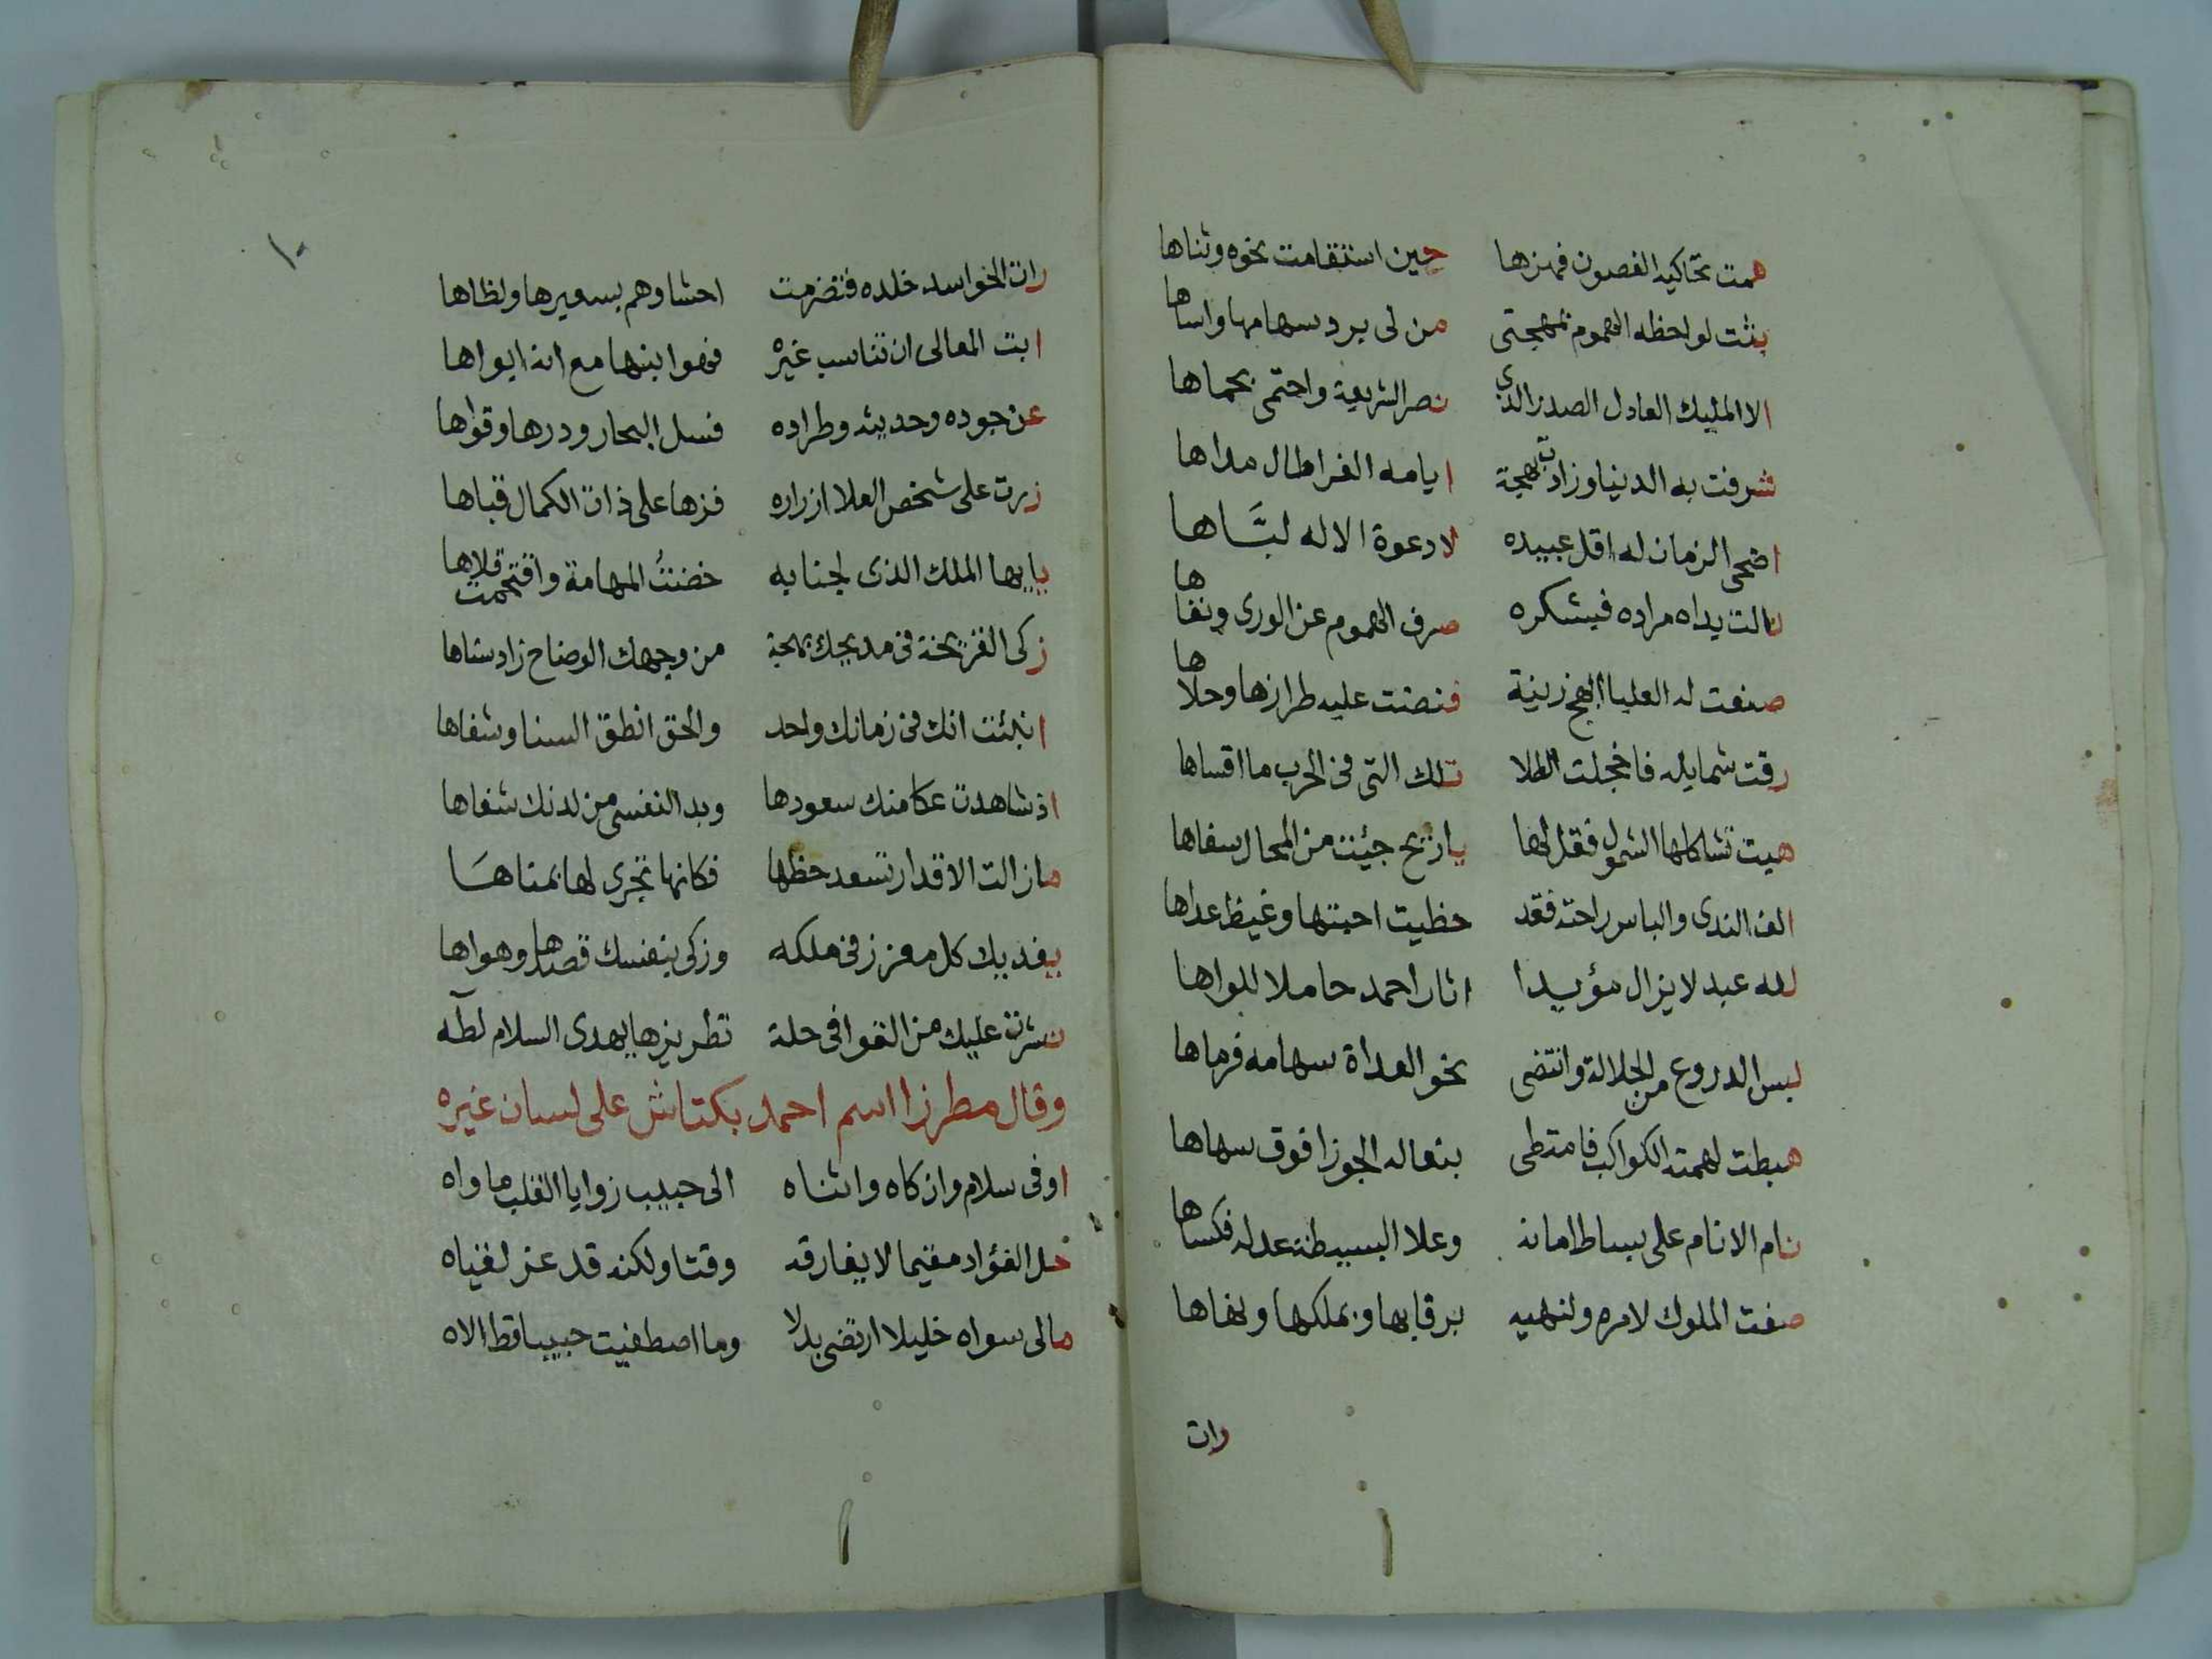 همت تحاكيه الغصون فهزها حين استقامت نحوه وثناها
بثت لواحظه الهموم بمهجتى من لى برد سهامها واساها
الا المليك العادل الصدر الذى نصر الشريعة واحتمى بحماها
شرفت به الدنيا وزادت بهجة ايامه الغرا طال مداها
اضحى الزمان له اقل عبيده لا دعوة الاله لبَّاها
نالت يداه مراده فيشكره صرف الهموم عن الورى ونفاها
صنعت له العليا ابهج زينة فنضت عليه طرازها وحلاها
رقت شمايله فاخجلت الطلا تلك التى فى الحرب ما اقساها
هبت تشاكلها الشمول فقل لها يا ريح جئت من المحال سفاها
الف الندى والباس راحته فقد حظيت احبتها وغيظ عداها
لله عبد لا يزال مؤيدا اثار احمد حاملا للواها
لبس الدروع من الجلالة وانتضى نحو العداة سهامه فرماها
هبطت لهمته الكواكب فامتطى بنعاله الجوزا فوق سهاها
نام الانام على بساط امانه وعلا البسيطة عدله فكساها
صفت الملوك لامره ولنهيه برقابها وبملكها ولهاها
رات
١٠
رات الحواسد خلده فتضرمت احشاوهم بسعيرها ولظاها
ابت المعالى ان تناسب غيره فهو ابنها مع انه ابواها
عن جوده وحديثه وطراده فسل البحار ودرها وقواها
زرت على شخص العلا ازراره فزها على ذات الكمال قباها
يا يها الملك الذى لجنابه خضنتُ المهامة واقتحمت فلاها
زكى القريحة فى مديحك بهجة من وجهك الوضاح زاد سناها
انبئت انك فى زمانك واحد والحق انطق السنا وشفاها
اذ شاهدت عكا منك سعودها وبد النفسى من لدنك شفاها
مازالت الاقدار تسعد حظها فكانها تجرى لها بمناهَا
يفديك كل معزز فى ملكه وزكى بنفسك قصدها وهواها
نشرت عليك من القوافى حلة تطريزها يهدى السلام لطه
وقال مطرزا اسم احمد بكتاش على لسان غيره
اوفى سلام وازكاه واثناه الى حبيب زوايا القلب ماواه
حل الفؤاد مقيما لا يفارقه وقتا ولكنه قد عز لقياه
مالى سواه خليلا ارتضى بدلا وما اصطفيت حبيبا قط الاه